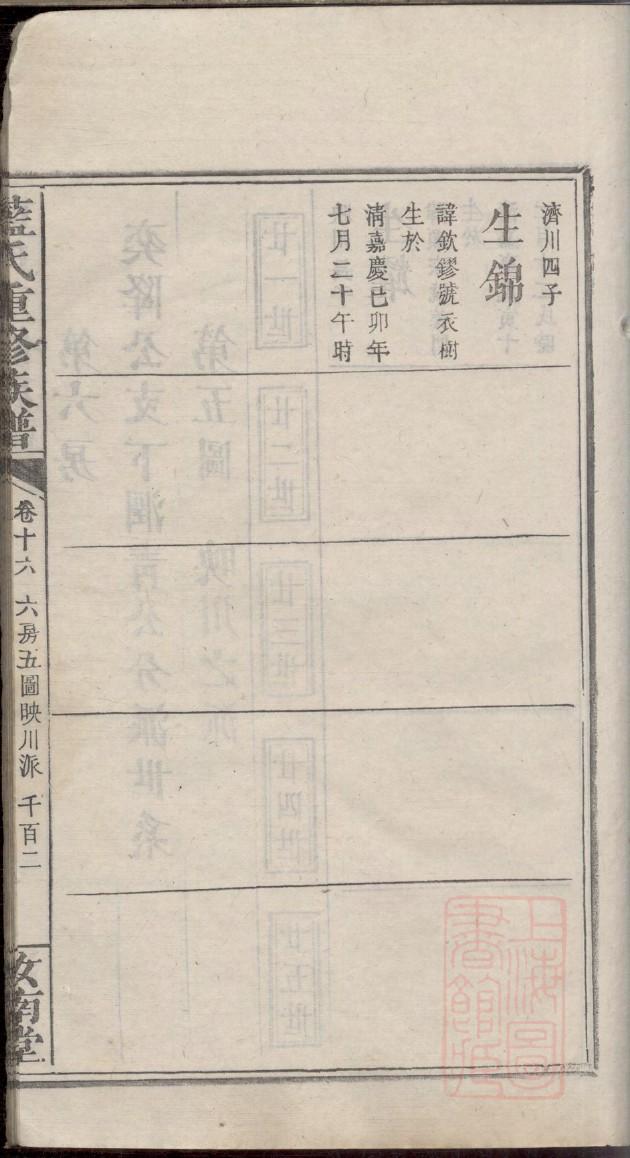 濟川四子
生錦
諱欽鏐號衣樹
生於
清嘉慶己卯年
七月二十午時
藍氏重修族譜
卷十六 六房五圖映川派 千百二
汝南堂
上海圖書館藏